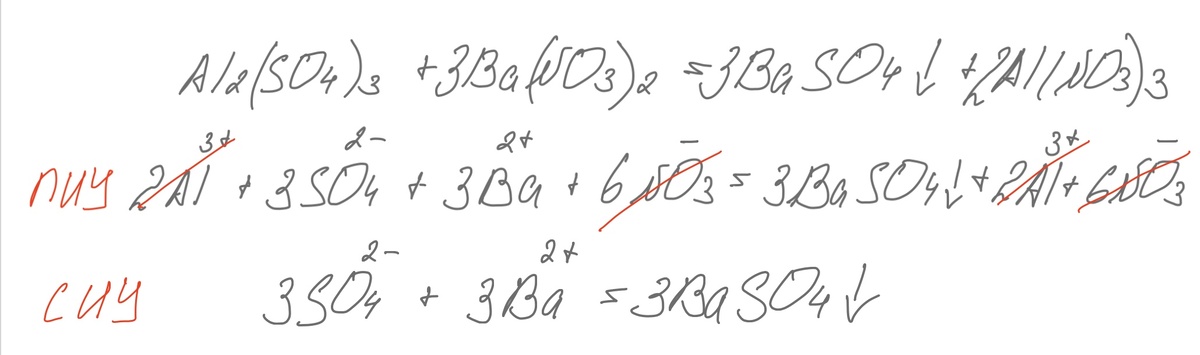 Al₂(SO₄)₃ + 3Ba(NO₃)₂ = 3BaSO₄↓ + 2Al(NO₃)₃
ПИУ 2Al³⁺ + 3SO₄²⁻ + 3Ba²⁺ + 6NO₃⁻ = 3BaSO₄↓ + 2Al³⁺ + 6NO₃⁻
СИУ 3SO₄²⁻ + 3Ba²⁺ = 3BaSO₄↓